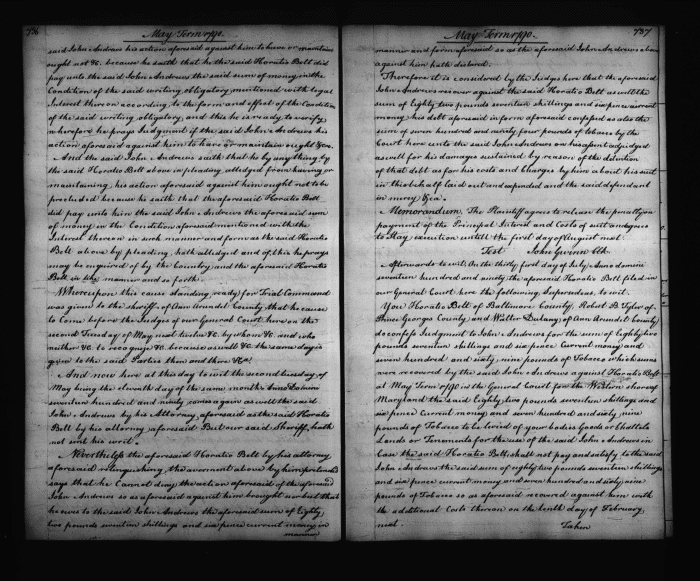 736
May Term 1790.
said John Andrews his action aforesaid against him to have or maintain
ought not &c. because he saith that he the said Horatio Belt did
pay unto the said John Andrews the said sum of money in the
Condition of the said writing obligatory mentioned with legal
Interest thereon according to the form and effect of the Condition
of the said writing obligatory, and this he is ready to verify
wherefore he prays Judgment if the said John Andrews his
action aforesaid against him to have or maintain ought &ca.
And the said John Andrews saith that he by any thing by
the said Horatio Belt above in pleading alledged from having or
maintaining his action aforesaid against him ought not to be
precluded because he saith that the aforesaid Horatio Belt
did pay unto him the said John Andrews the aforesaid sum
of money in the Condition aforesaid mentioned with the
Interest thereon in such manner and form as the said Horatio
Belt above by pleading hath alledged and of this he prays
may be inquired of by the Country and the aforesaid Horatio
Belt in like manner and so forth.
Whereupon this cause standing ready for Trial Command
was given to the sheriff of Ann Arundel County that he cause
to Come before the Judges of our General Court here on the
second Tuesday of May next twelve &c. by whom &c. and who
neither &c. to recognize &c. because as well &c. the same day is
given to the said Parties then and there &c.
And now here at this day to wit the second tuesday of
May being the eleventh day of the same month Anno Domini
seventeen hundred and ninety comes again as well the said
John Andrews by his Attorney aforesaid as the said Horatio
Belt by his attorney aforesaid But our said Sheriff hath
not sent his writ.
Nevertheless the aforesaid Horatio Belt by his attorney
aforesaid relinquishing the averment above by him pretended
says that he Cannot deny the action aforesaid of the aforesaid
John Andrews so as aforesaid against him brought nor but that
he owes to the said John Andrews the aforesaid sum of Eighty
two pounds seventeen shillings and six pence current money in
manner
May Term 1790.
737
manner and form aforesaid so as the aforesaid John Andrews above
against him hath declared.
Therefore it is considered by the Judges here that the aforesaid
John Andrews recover against the said Horatio Belt as well the
sum of Eighty two pounds seventeen shillings and six pence current
money his debt aforesaid in form aforesaid confessed as also the
sum of seven hundred and ninety four pounds of tobacco by the
Court here unto the said John Andrews on his assent adjudged
as well for his damages sustained by reason of the detention
of that debt as for his costs and Charges by him about his suit
in this behalf laid out and expended and the said defendant
in mercy &ca.
Memorandum, The Plaintiff agrees to release the penalty on
payment of the Principal Interest and Costs of suit and agrees
to Stay execution untill the first day of August next.
Test John Gwinn Clk.
Afterwards to wit On the thirty first day of July Anno domini
seventeen hundred and ninety the aforesaid Horatio Belt filed in
our General Court here the following Supersedeas, to wit.
You Horatio Belt of Baltimore County, Robert B Tyler of
Prince Georges County and Walter Dulany of Ann Arundel County
do confess Judgment to John Andrews for the sum of Eighty two
pounds seventeen shillings and six pence Current money and
seven hundred and sixty nine pounds of Tobacco which sums
were recovered by the said John Andrews against Horatio Belt
at May Term 1790 in the General Court for the Western shore of
Maryland the said Eighty two pounds seventeen shillings and
six pence Current money and seven hundred and sixty nine
pounds of Tobacco to be levied of your bodies Goods or Chattels
Lands or Tenements for the use of the said John Andrews in
Case the said Horatio Belt shall not pay and satisfy to the said
John Andrews the said sum of eighty two pounds seventeen shillings
and six pence current money and seven hundred and sixty nine
pounds of Tobacco so as aforesaid recovered against him with
the additional Costs thereon on the tenth day of February
next.
Taken